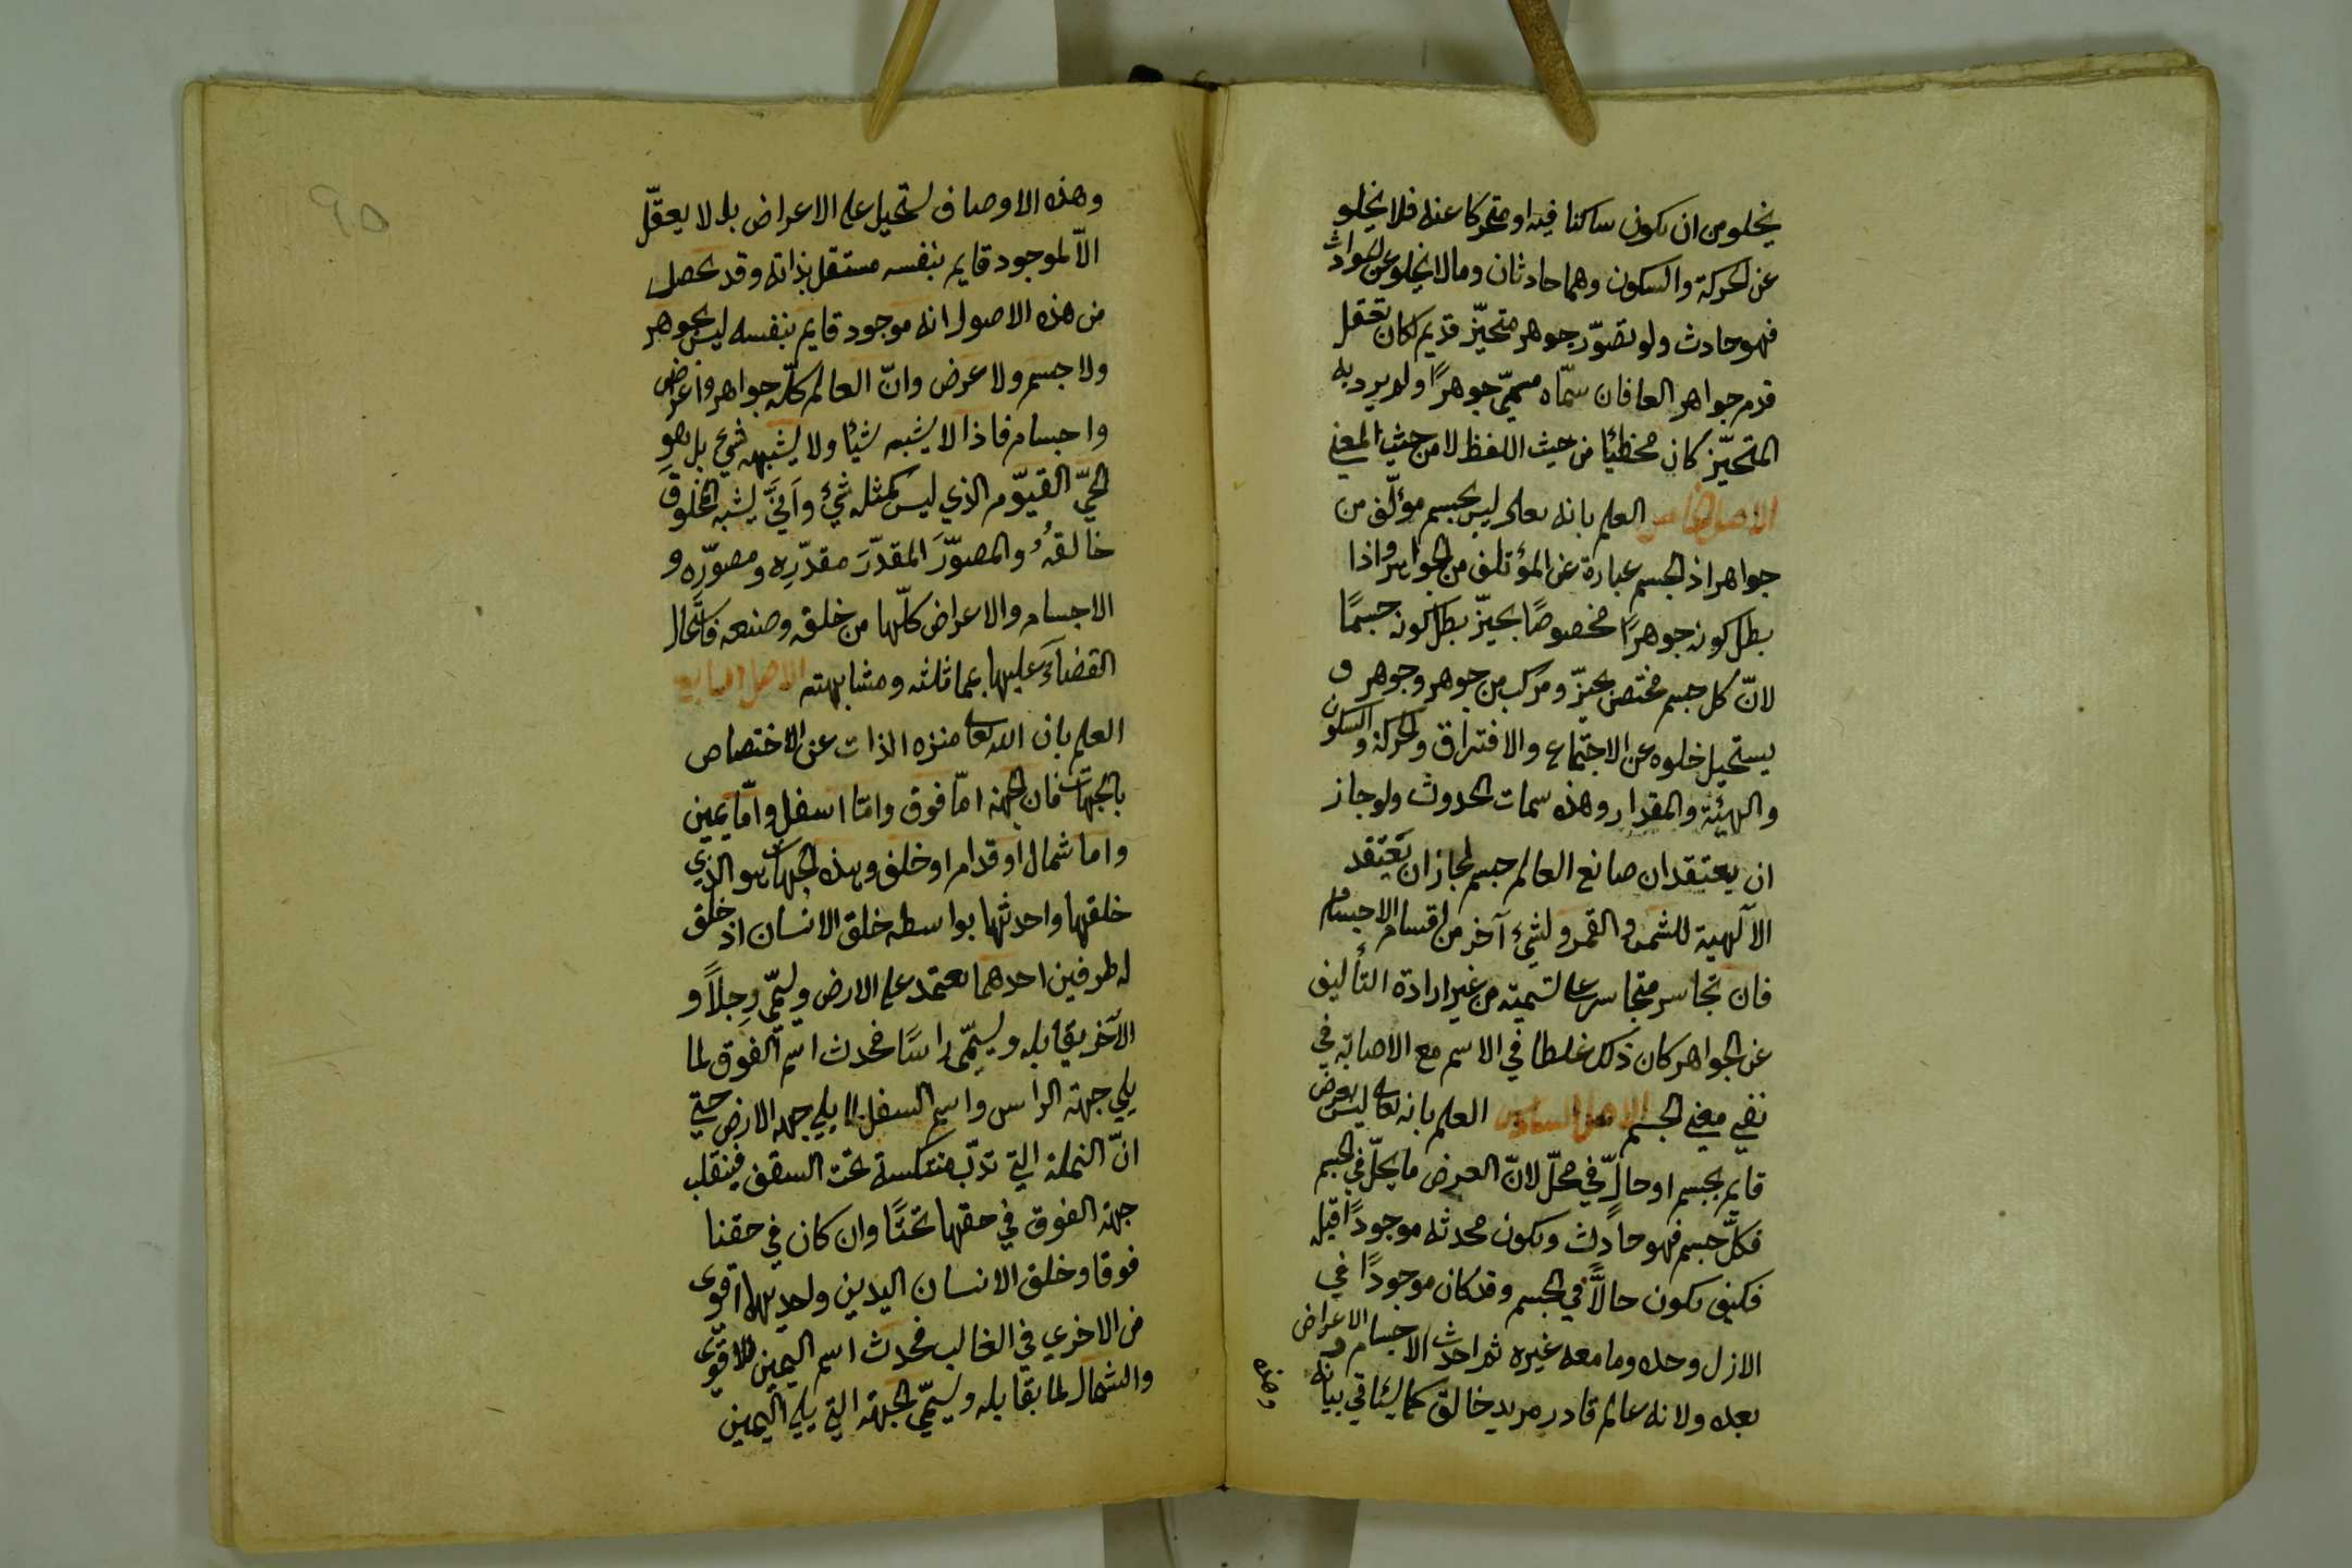 يخلو من ان يكون ساكنا فيه او متحركا عنه فلا يخلو
عن الحركة والسكون وهما حادثان وما لا يخلو عن الحوادث
فهو حادث ولو تصوّر جوهر متحيّز قديم لكان تعقل
قدم جواهر العا فان سمّاه مسمّي جوهرًا ولم يرد به
المتحيّز كان مخطئا من حيث اللفظ لا من حيث المعني
الاصل الخامس العلم بانه تعالى ليس بجسم مؤلّف من
جواهر اذ الجسم عبارة عن المؤتلف من الجواهر واذا
بطل كونه جوهرًا مخصوصًا بحيّز بطل كونه جسمًا
لانّ كل جسم مختص بحيّز ومركب من جوهر وجوهر و
يستحيل خلوه عن الاجتماع والافتراق والحركة والسكون
والهيئة والمقدار وهذه سمات الحدوث ولو جاز
ان يعتقد ان صانع العالم جسم لجاز ان يعتقد
الآلهية للشمس والقمر ولشيء آخر من اقسام الاجسام
فان تجاسر متجاسر على تسميته من غير ارادة التأليف
عن الجواهر كان ذلك غلطا في الاسم مع الاصابة في
نفي معني الجسم الاصل السادس العلم بانه تعالى ليس بعرض
قايم بجسم او حالّ في محلّ لانّ العرض ما يحلّ في الجسم
فكلّ جسم فهو حادث ويكون محدثه موجودًا قبله
فكيف يكون حالًّا في الجسم وقد كان موجودًا في
الازل وحده وما معه غيره ثم احدث الاجسام والاعراض
بعده ولانه عالم قادر مريد خالق كما سياتي بيانه
وهذه
وهذه الاوصاف تستحيل على الاعراض بل لا يعقّل
الّا لموجود قايم بنفسه مستقل بذاته وقد تحصل
من هذه الاصول انه موجود قايم بنفسه ليس بجوهر
ولا جسم ولا عرض وانّ العالم كلّه جواهر واعراض
واجسام فاذا لا يشبه شيئا ولا يشبهه شيء بل هو
الحيّ القيّوم الذي ليس كمثله شيء وأنّي يشبه المخلوق
خالقهُ والمصوّرَ المقدّرَ مقدّرِه ومصوّرِه و
الاجسام والاعراض كلّها من خلقه وصنعه فاستحال
القضاء عليها بمماثلته ومشابهته الاصل السابع
العلم بان الله تعالى منزه الذات عن الاختصاص
بالجهات فان الجهة امّا فوق وامّا اسفل وامّا يمين
واما شمال او قدام او خلف وهذه الجهات هو الذي
خلقها واحدثها بواسطه خلق الانسان اذ خلق
له طرفين احدهما يعتمد على الارض ويسمّي رِجلًا و
الآخر يقابله ويسمّي راسًا فحدث اسم الفوق لما
يلي جهة الراس واسم السفل لما يلي جهة الارض حتي
انّ النملة التي تدبّ منتكسة تحت السقف فينقلب
جهة الفوق في حقها تحتًا وان كان في حقنا
فوقا وخلق الانسان اليدين واحديهما اقوى
من الاخري في الغالب فحدث اسم اليمين للاقوّى
والشمال لما يقابله ويسمّي الجهة التي يلي اليمين